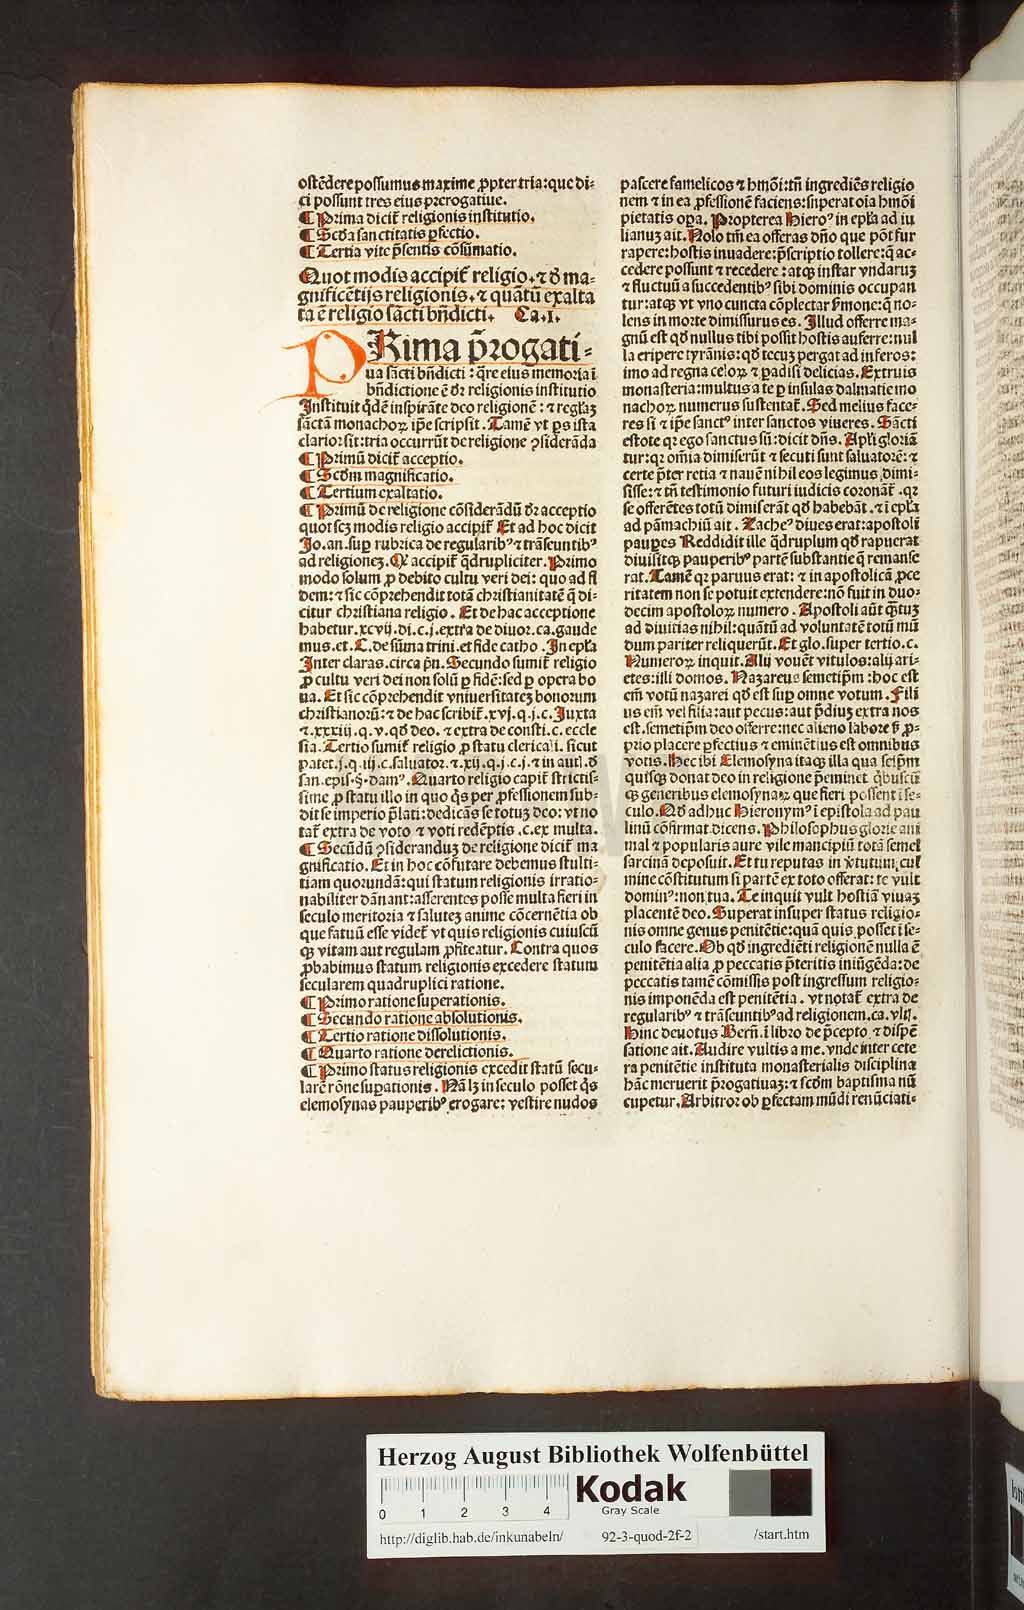 ostēdere possumus maxime ꝓpter tria: que di-
ci possunt tres eius prerogatiue.
¶ Prima dicit̃ religionis institutio.
¶ Scđa sanctitatis ꝑfectio.
¶ Tertia vite p̃sentis cōsumatio.
Quot modis accipit̃ religio. ⁊ đ ma-
gnificētijs religionis. ⁊ quātū exalta
ta ē religio sācti bñdicti. Ca. I.
PRima p̃rogati-
ua sācti bñdicti: q̃re eius memoria ī
bñdictione ē đr religionis institutio
Instituit q̃dē inspirāte deo religionē: ⁊ reglaꝫ
sāctā monachoꝝ ip̃e scripsit. Tamē vt ꝑs ista
clarior sit: tria occurrūt de religione ꝯsiderāda
¶ Primū dicit̃ acceptio.
¶ Scđm magnificatio.
¶ Tertium exaltatio.
¶ Primū de religione cōsiderādū đr acceptio
quot scꝫ modis religio accipit̃ Et ad hoc dicit
Jo. an. suꝑ rubrica de regularibꝰ ⁊ trāseuntibꝰ
ad religioneꝫ. Qr accipit̃ q̃drupliciter. Primo
modo solum ꝓ debito cultu veri dei: quo ad fi
dem: ⁊ sic cōprehendit totā christianitatē q̃ di-
citur christiana religio. Et de hac acceptione
habetur. xcvij. di. c. j. extra de diuor. ca. gaude
mus. et. C. de sūma trini. et fide catho. In epl̃a
Inter claras. circa pñ. Secundo sumit̃ religio
ꝓ cultu veri dei non solū ꝑ fidē: sed ꝑ opera bo
ua. Et sic cōprehendit vniuersitateꝫ bonorum
christianorū: ⁊ de hac scribit̃. xvj. q. j. c. Juxta
⁊. xxxiij. q. v. qđ deo. ⁊ extra de consti. c. eccle
sia. Tertio sumit̃ religio ꝓ statu clericali. sicut
patet. j. q. iij. c. saluator. ⁊. xij. q. j. c. j. ⁊ in autl. đ
san. epis. §. damꝰ. Quarto religio capit̃ strictis-
sime ꝓ statu illo in quo q̃s per ꝓfessionem sub-
dit se imperio p̃lati: dedicās se totuꝫ deo: vt no
tat̃ extra de voto ⁊ voti redēptis. c. ex multa.
¶ Secūdū ꝯsideranduꝫ de religione dicit̃ ma
gnificatio. Et in hoc cōfutare debemus stulti-
tiam quorundā: qui statum religionis irratio-
nabiliter dānant: asserentes posse multa fieri in
seculo meritoria ⁊ saluteꝫ anime cōcernētia ob
que fatuū esse videt̃ vt quis religionis cuiuscū
qꝫ vitam aut regulam ꝓfiteatur. Contra quos
ꝓbabimus statum religionis excedere statum
secularem quadruplici ratione.
¶ Primo ratione superationis.
¶ Secundo ratione absolutionis.
¶ Tertio ratione dissolutionis.
¶ Quarto ratione derelictionis.
¶ Primo status religionis excedit statū secu-
larē rōne suꝑationis. Nā lꝫ in seculo posset q̃s
elemosynas pauperibꝰ erogare: vestire nudos
pascere famelicos ⁊ hmōi: tñ ingrediēs religio
nem ⁊ in ea ꝓfessionē faciens: superat oia hmōi
pietatis oꝑa. Propterea Hieroꝰ in epl̃a ad iu
lianuꝫ ait. Nolo tm̃ ea offeras dño que pōt fur
rapere: hostis inuadere: p̃scriptio tollere: q̃ ac-
cedere possunt ⁊ recedere: atqꝫ instar vndaruꝫ
⁊ fluctuū a succedentibꝰ sibi dominis occupan
tur: atqꝫ vt vno cuncta cōplectar ẜmone: q̃ no-
lens in morte dimissurus es. Illud offerre ma-
gnū est qđ nullus tibi possit hostis auferre: nul
la eripere tyrānis: qđ tecuꝫ pergat ad inferos:
imo ad regna celoꝝ ⁊ ꝑadisi delicias. Extruis
monasteria: multus a te ꝑ insulas dalmatie mo
nachoꝝ numerus sustentat̃. Sed melius face-
res si ⁊ ip̃e sanctꝰ inter sanctos viueres. Sācti
estote qr ego sanctus sū: dicit dñs. Apl̃i gloriā
tur: qr om̃ia dimiserūt ⁊ secuti sunt saluatorē: ⁊
certe p̃ter retia ⁊ nauē nihil eos legimus dimi-
sisse: ⁊ tñ testimonio futuri iudicis coronāt̃. qr
se offerētes totū dimiserāt qđ habebāt. ⁊ ī epl̃a
ad pāmachiū ait. Zacheꝰ diues erat: apostoli
pauꝑes Reddidit ille q̃druplum qđ rapuerat
diuisitqꝫ pauperibꝰ partē substantie q̃ remanse
rat. Tamē qr paruus erat: ⁊ in apostolicā ꝓce
ritatem non se potuit extendere: nō fuit in duo-
decim apostoloꝝ numero. Apostoli aūt q̃tuꝫ
ad diuitias nihil: quātū ad voluntatē totū mū
dum pariter reliquerūt. Et glo. super tertio. c.
Numeroꝝ inquit. Alij vouēt vitulos: alij ari-
etes: illi domos. Nazareus semetip̃m: hoc est
em̃ votū nazarei qđ est suꝑ omne votum. Fili
us em̃ vel filia: aut pecus: aut p̃diuꝫ extra nos
est. semetip̃m deo offerre: nec alieno labore ẜ ꝓ-
prio placere ꝑfectius ⁊ eminētius est omnibus
votis. Hec ibi Elemosyna itaqꝫ illa qua seip̃m
quisqꝫ donat deo in religione p̃eminet q̃buscū
qꝫ generibus elemosynaꝝ que fieri possent ī se-
culo. Qđ adhuc Hieronymꝰ ī epistola ad pau
linū cōfirmat dicens. Philosophus glorie ani
mal ⁊ popularis aure vile mancipiū totā semel
sarcinā deposuit. Et tu reputas in v̓tutum cul
mine cōstitutum si partē ex toto offerat: te vult
dominꝰ: non tua. Te inquit vult hostiā viuaꝫ
placentē deo. Superat insuper status religio-
nis omne genus penitētie: quā quis posset ī se-
culo facere. Ob qđ ingrediēti religionē nulla ē
penitētia alia ꝓ peccatis p̃teritis iniūgēda: de
peccatis tamē cōmissis post ingressum religio-
nis imponēda est penitētia. vt notat̃ extra de
regularibꝰ ⁊ trāseuntibꝰ ad religionem. ca. vltī.
Hinc deuotus Bern̄. ī libro de p̃cepto ⁊ dispē
satione ait. Audire vultis a me. vnde inter cete
ra penitētie instituta monasterialis disciplina
hāc meruerit p̃rogatiuaꝫ: ⁊ scđm baptisma nū
cupetur. Arbitror ob ꝑfectam mūdi renūciati-
Herzog August Bibliothek Wolfenbüttel
Kodak
Gray Scale
0 1 2 3 4
http://diglib.hab.de/inkunabeln/ 92-3-quod-2f-2 /start.htm